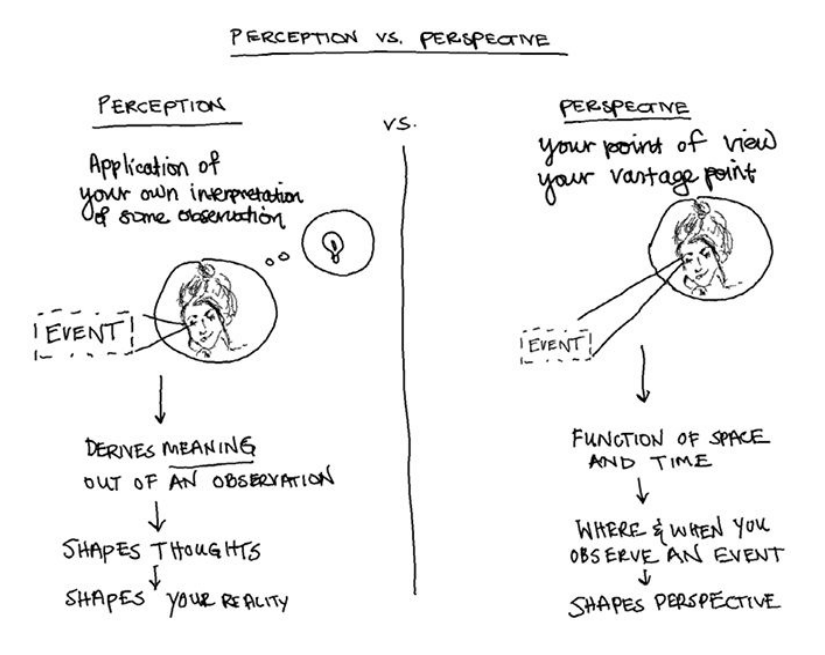 PERCEPTION VS. PERSPECTIVE
PERCEPTION
Application of
your own interpretation
of some observation
EVENT
DERIVES MEANING
OUT OF AN OBSERVATION
SHAPES THOUGHTS
SHAPES YOUR REALITY
VS.
PERSPECTIVE
your point of view
your vantage point
EVENT
FUNCTION OF SPACE
AND TIME
WHERE & WHEN YOU
OBSERVE AN EVENT
SHAPES PERSPECTIVE